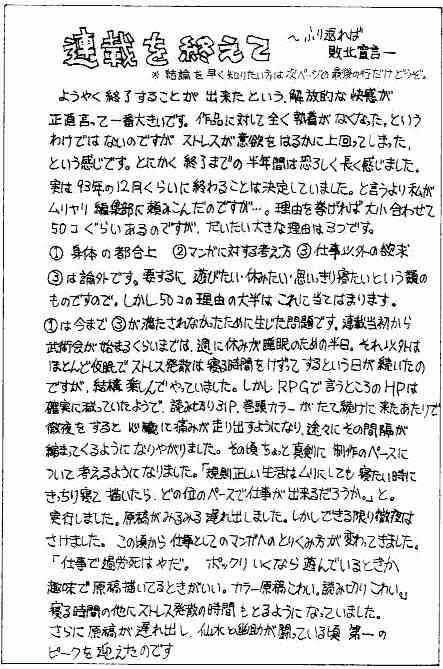 連載を終えて
～ふり返れば
敗北宣言―
※結論を早く知りたい方は次ページの最後の行だけどうぞ。
ようやく終了することが出来たという、解放的な快感が
正直言って一番大きいです。作品に対して全く執着がなくなった、という
わけではないのですがストレスが意欲をはるかに上回ってしまった、
という感じです。とにかく終了までの半年間は恐ろしく長く感じました。
実は93年の12月くらいに終わることは決定していました。と言うより私が
ムリヤリ編集部に頼みこんだのですが…。理由を挙げれば大小合わせて
50コぐらいあるのですが、だいたい大きな理由は3つです。
①身体の都合上 ②マンガに対する考え方 ③仕事以外の欲求
③は論外です。要するに遊びたい・休みたい・思いっきり寝たいという類の
ものですので。しかし50コの理由の大半はこれに当てはまります。
①は今まで③が満たされなかったために生じた問題です。連載当初から
武術会が始まるくらいまでは、週に休みが睡眠のための半日。それ以外は
ほとんど仮眠でストレス発散は寝る時間をけずってするという日が続いたの
ですが、結構楽しんでやっていました。しかしRPGで言うところのHPは
確実に減っていたようで、読み切り31P、巻頭カラーがたて続けに来たあたりで
徹夜をすると心臓に痛みが走り出すようになり、途々にその間隔が
縮まってくるようになりやがりました。その頃ちょっと真剣に制作のペースに
ついて考えるようになりました。「規則正しい生活はムリにしても寝たい時に
きっちり寝て描いたら、どの位のペースで仕事が出来るだろうか。」と。
実行しました。原稿がみるみる遅れ出しました。しかしできる限り徹夜は
さけました。この頃から仕事としてのマンガへのとりくみ方が変わってきました。
「仕事で過労死はやだ。ポックリいくなら遊んでいるときか
趣味で原稿描いてるときがいい。カラー原稿こわい。読み切りこわい。」
寝る時間の他にストレス発散の時間もとるようになっていました。
さらに原稿が遅れ出し、仙水と幽助が闘っている頃第一の
ピークを迎えたのです